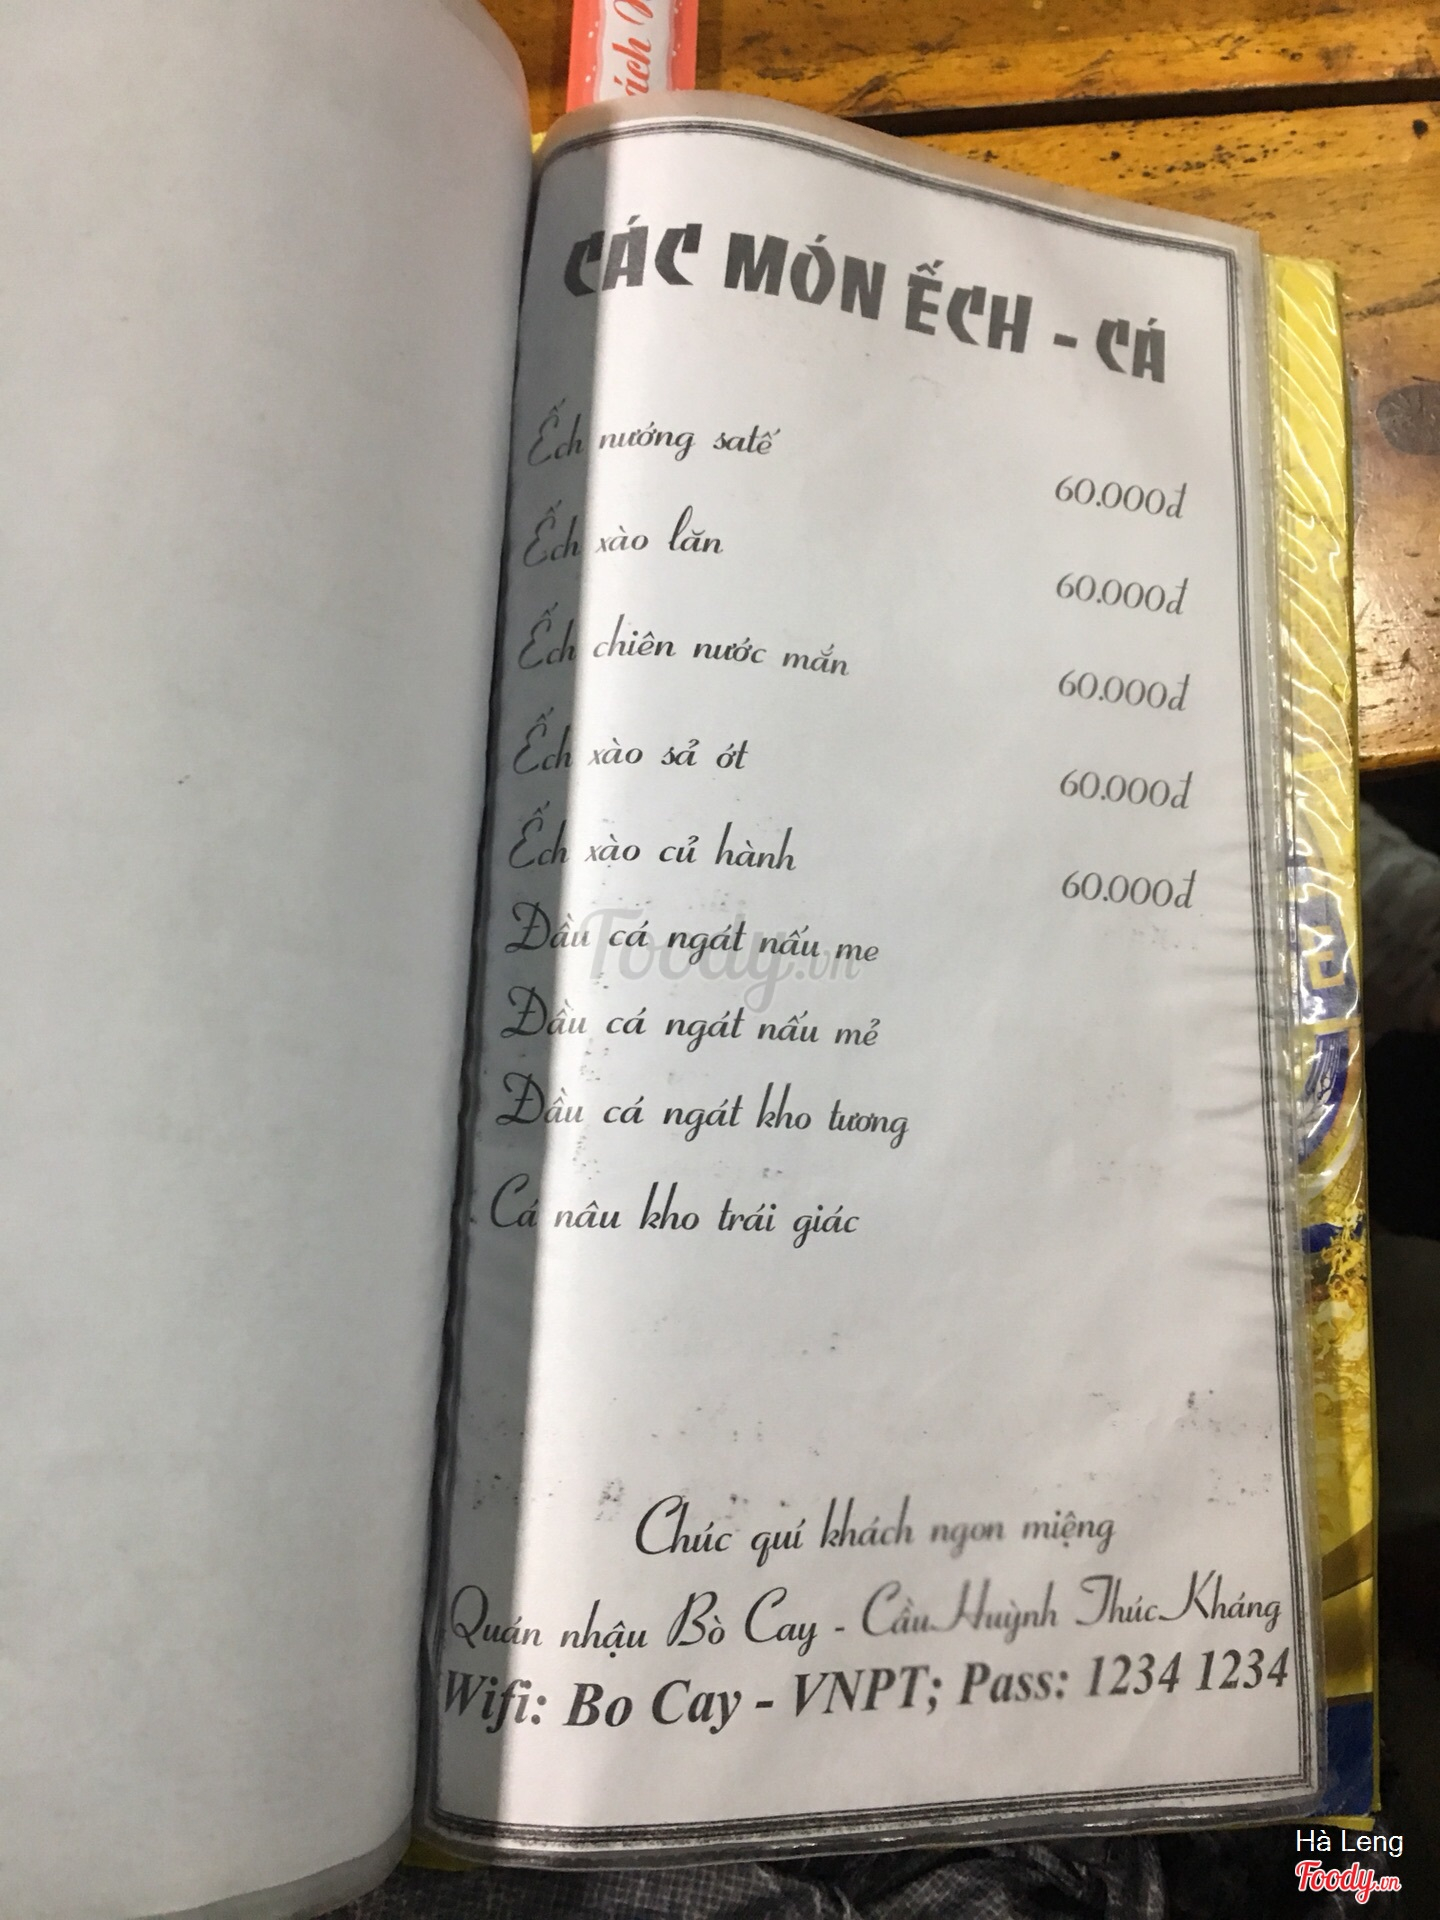 ách
CÁC MÓN ẾCH - CÁ
Ếch nướng satế 60.000đ
Ếch xào lăn 60.000đ
Ếch chiên nước mắn 60.000đ
Ếch xào sả ớt 60.000đ
Ếch xào củ hành 60.000đ
Đầu cá ngát nấu me
Foody.vn
Đầu cá ngát nấu mẻ
Đầu cá ngát kho tương
Cá nâu kho trái giác
Chúc quí khách ngon miệng
Quán nhậu Bò Cay - Cầu Huỳnh Thúc Kháng
Wifi: Bo Cay - VNPT; Pass: 1234 1234
Hà Leng
Foody.vn